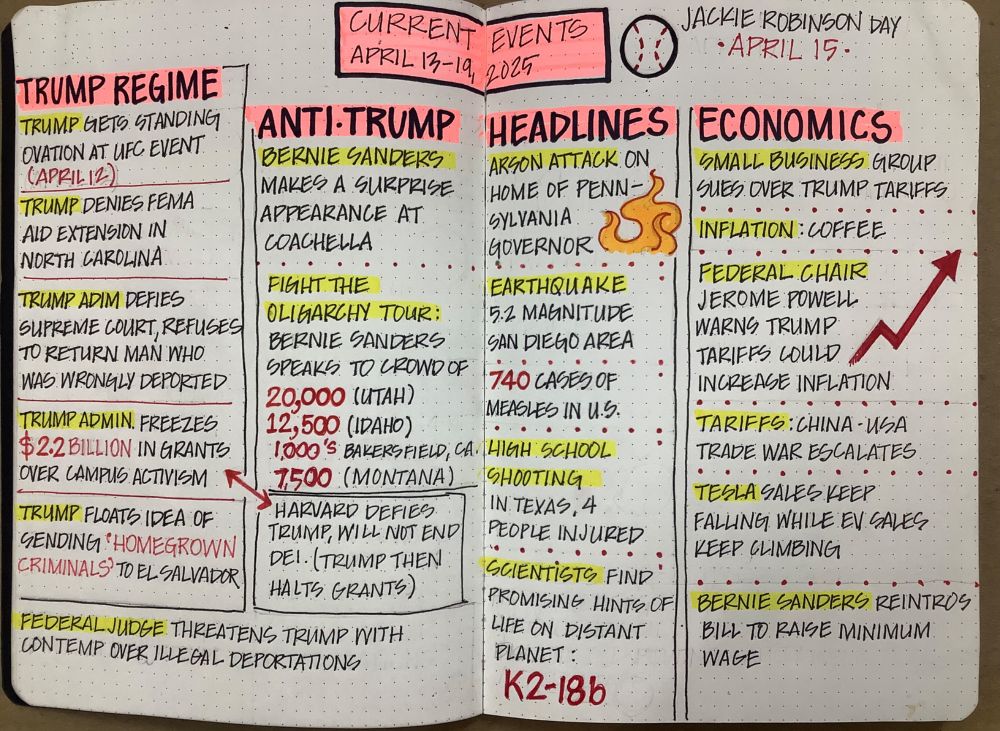 CURRENT EVENTS
APRIL 13-19, 2025
JACKIE ROBINSON DAY
·APRIL 15·
TRUMP REGIME
TRUMP GETS STANDING
OVATION AT UFC EVENT
(APRIL 12)
TRUMP DENIES FEMA
AID EXTENSION IN
NORTH CAROLINA
TRUMP ADIM DEFIES
SUPREME COURT, REFUSES
TO RETURN MAN WHO
WAS WRONGLY DEPORTED
TRUMP ADMIN. FREEZES
$2.2 BILLION IN GRANTS
OVER CAMPUS ACTIVISM
TRUMP FLOATS IDEA OF
SENDING "HOMEGROWN
CRIMINALS" TO EL SALVADOR
FEDERAL JUDGE THREATENS TRUMP WITH
CONTEMP OVER ILLEGAL DEPORTATIONS
ANTI·TRUMP
BERNIE SANDERS
MAKES A SURPRISE
APPEARANCE AT
COACHELLA
FIGHT THE
OLIGARCHY TOUR:
BERNIE SANDERS
SPEAKS TO CROWD OF
20,000 (UTAH)
12,500 (IDAHO)
1,000'S BAKERSFIELD, CA.
7,500 (MONTANA)
HARVARD DEFIES
TRUMP, WILL NOT END
DEI. (TRUMP THEN
HALTS GRANTS)
HEADLINES
ARSON ATTACK ON
HOME OF PENN-
SYLVANIA
GOVERNOR
EARTHQUAKE
5.2 MAGNITUDE
SAN DIEGO AREA
740 CASES OF
MEASLES IN U.S.
HIGH SCHOOL
SHOOTING
IN TEXAS, 4
PEOPLE INJURED
SCIENTISTS FIND
PROMISING HINTS OF
LIFE ON DISTANT
PLANET:
K2-18b
ECONOMICS
SMALL BUSINESS GROUP
SUES OVER TRUMP TARIFFS
INFLATION: COFFEE
FEDERAL CHAIR
JEROME POWELL
WARNS TRUMP
TARIFFS COULD
INCREASE INFLATION
TARIFFS: CHINA-USA
TRADE WAR ESCALATES
TESLA SALES KEEP
FALLING WHILE EV SALES
KEEP CLIMBING
BERNIE SANDERS REINTROS
BILL TO RAISE MINIMUM
WAGE